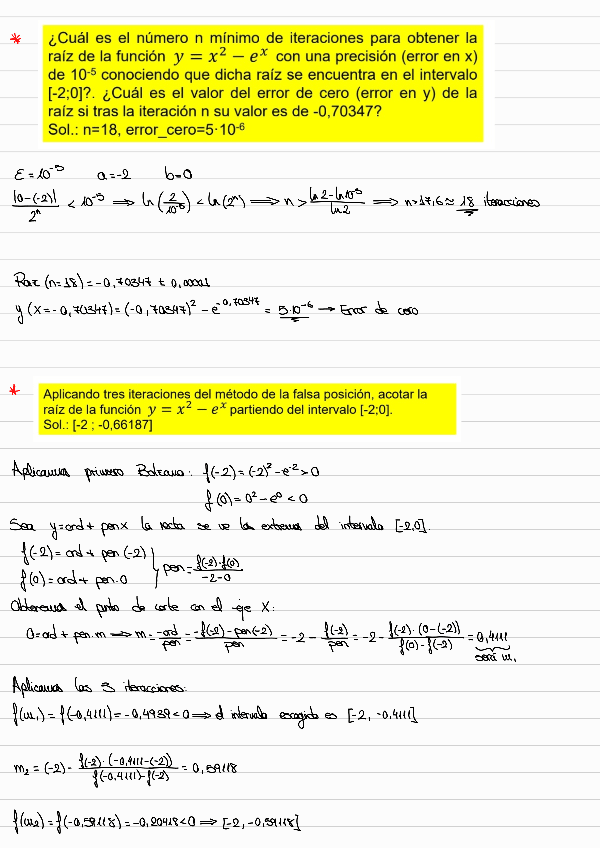 * ¿Cuál es el número n mínimo de iteraciones para obtener la
raíz de la función y = x² − eˣ con una precisión (error en x)
de 10⁻⁵ conociendo que dicha raíz se encuentra en el intervalo
[-2;0]?. ¿Cuál es el valor del error de cero (error en y) de la
raíz si tras la iteración n su valor es de -0,70347?
Sol.: n=18, error_cero=5·10⁻⁶
ε = 10⁻⁵ a=-2 b=0
|0-(-2)|/2ⁿ < 10⁻⁵ ⟹ ln(2/10⁻⁵) < ln(2ⁿ) ⟹ n > (ln2-ln10⁻⁵)/ln2 ⟹ n>17,6≈18 iteraciones
Raíz (n=18) = -0,70347 ± 0,00001
y (x=-0,70347) = (-0,70347)² - e^-0,70347 = 5·10⁻⁶ → Error de cero
* Aplicando tres iteraciones del método de la falsa posición, acotar la
raíz de la función y = x² − eˣ partiendo del intervalo [-2;0].
Sol.: [-2 ; -0,66187]
Aplicamos primero Bolzano: f(-2) = (-2)² - e⁻² > 0
f(0) = 0² - e⁰ < 0
Sea y=ord + pen x la recta se ve los extremos del intervalo [-2,0].
f(-2) = ord + pen (-2)
f(0) = ord + pen·0 } pen = (f(-2)-f(0))/(-2-0)
Obtenemos el punto de corte con el eje X:
0=ord + pen·m → m = -ord/pen = (-f(-2)-pen(-2))/pen = -2 - f(-2)/pen = -2 - (f(-2)·(0-(-2)))/(f(0)-f(-2)) = 0,4111
será m₁
Aplicamos las 3 iteraciones:
f(m₁) = f(-0,4111) = -0,4939 < 0 ⟹ el intervalo escogido es [-2, -0,4111]
m₂ = (-2) - (f(-2)·(-0,4111-(-2)))/(f(-0,4111)-f(-2)) = 0,59118
f(m₂) = f(-0,59118) = -0,20418 < 0 ⟹ [-2, -0,59118]